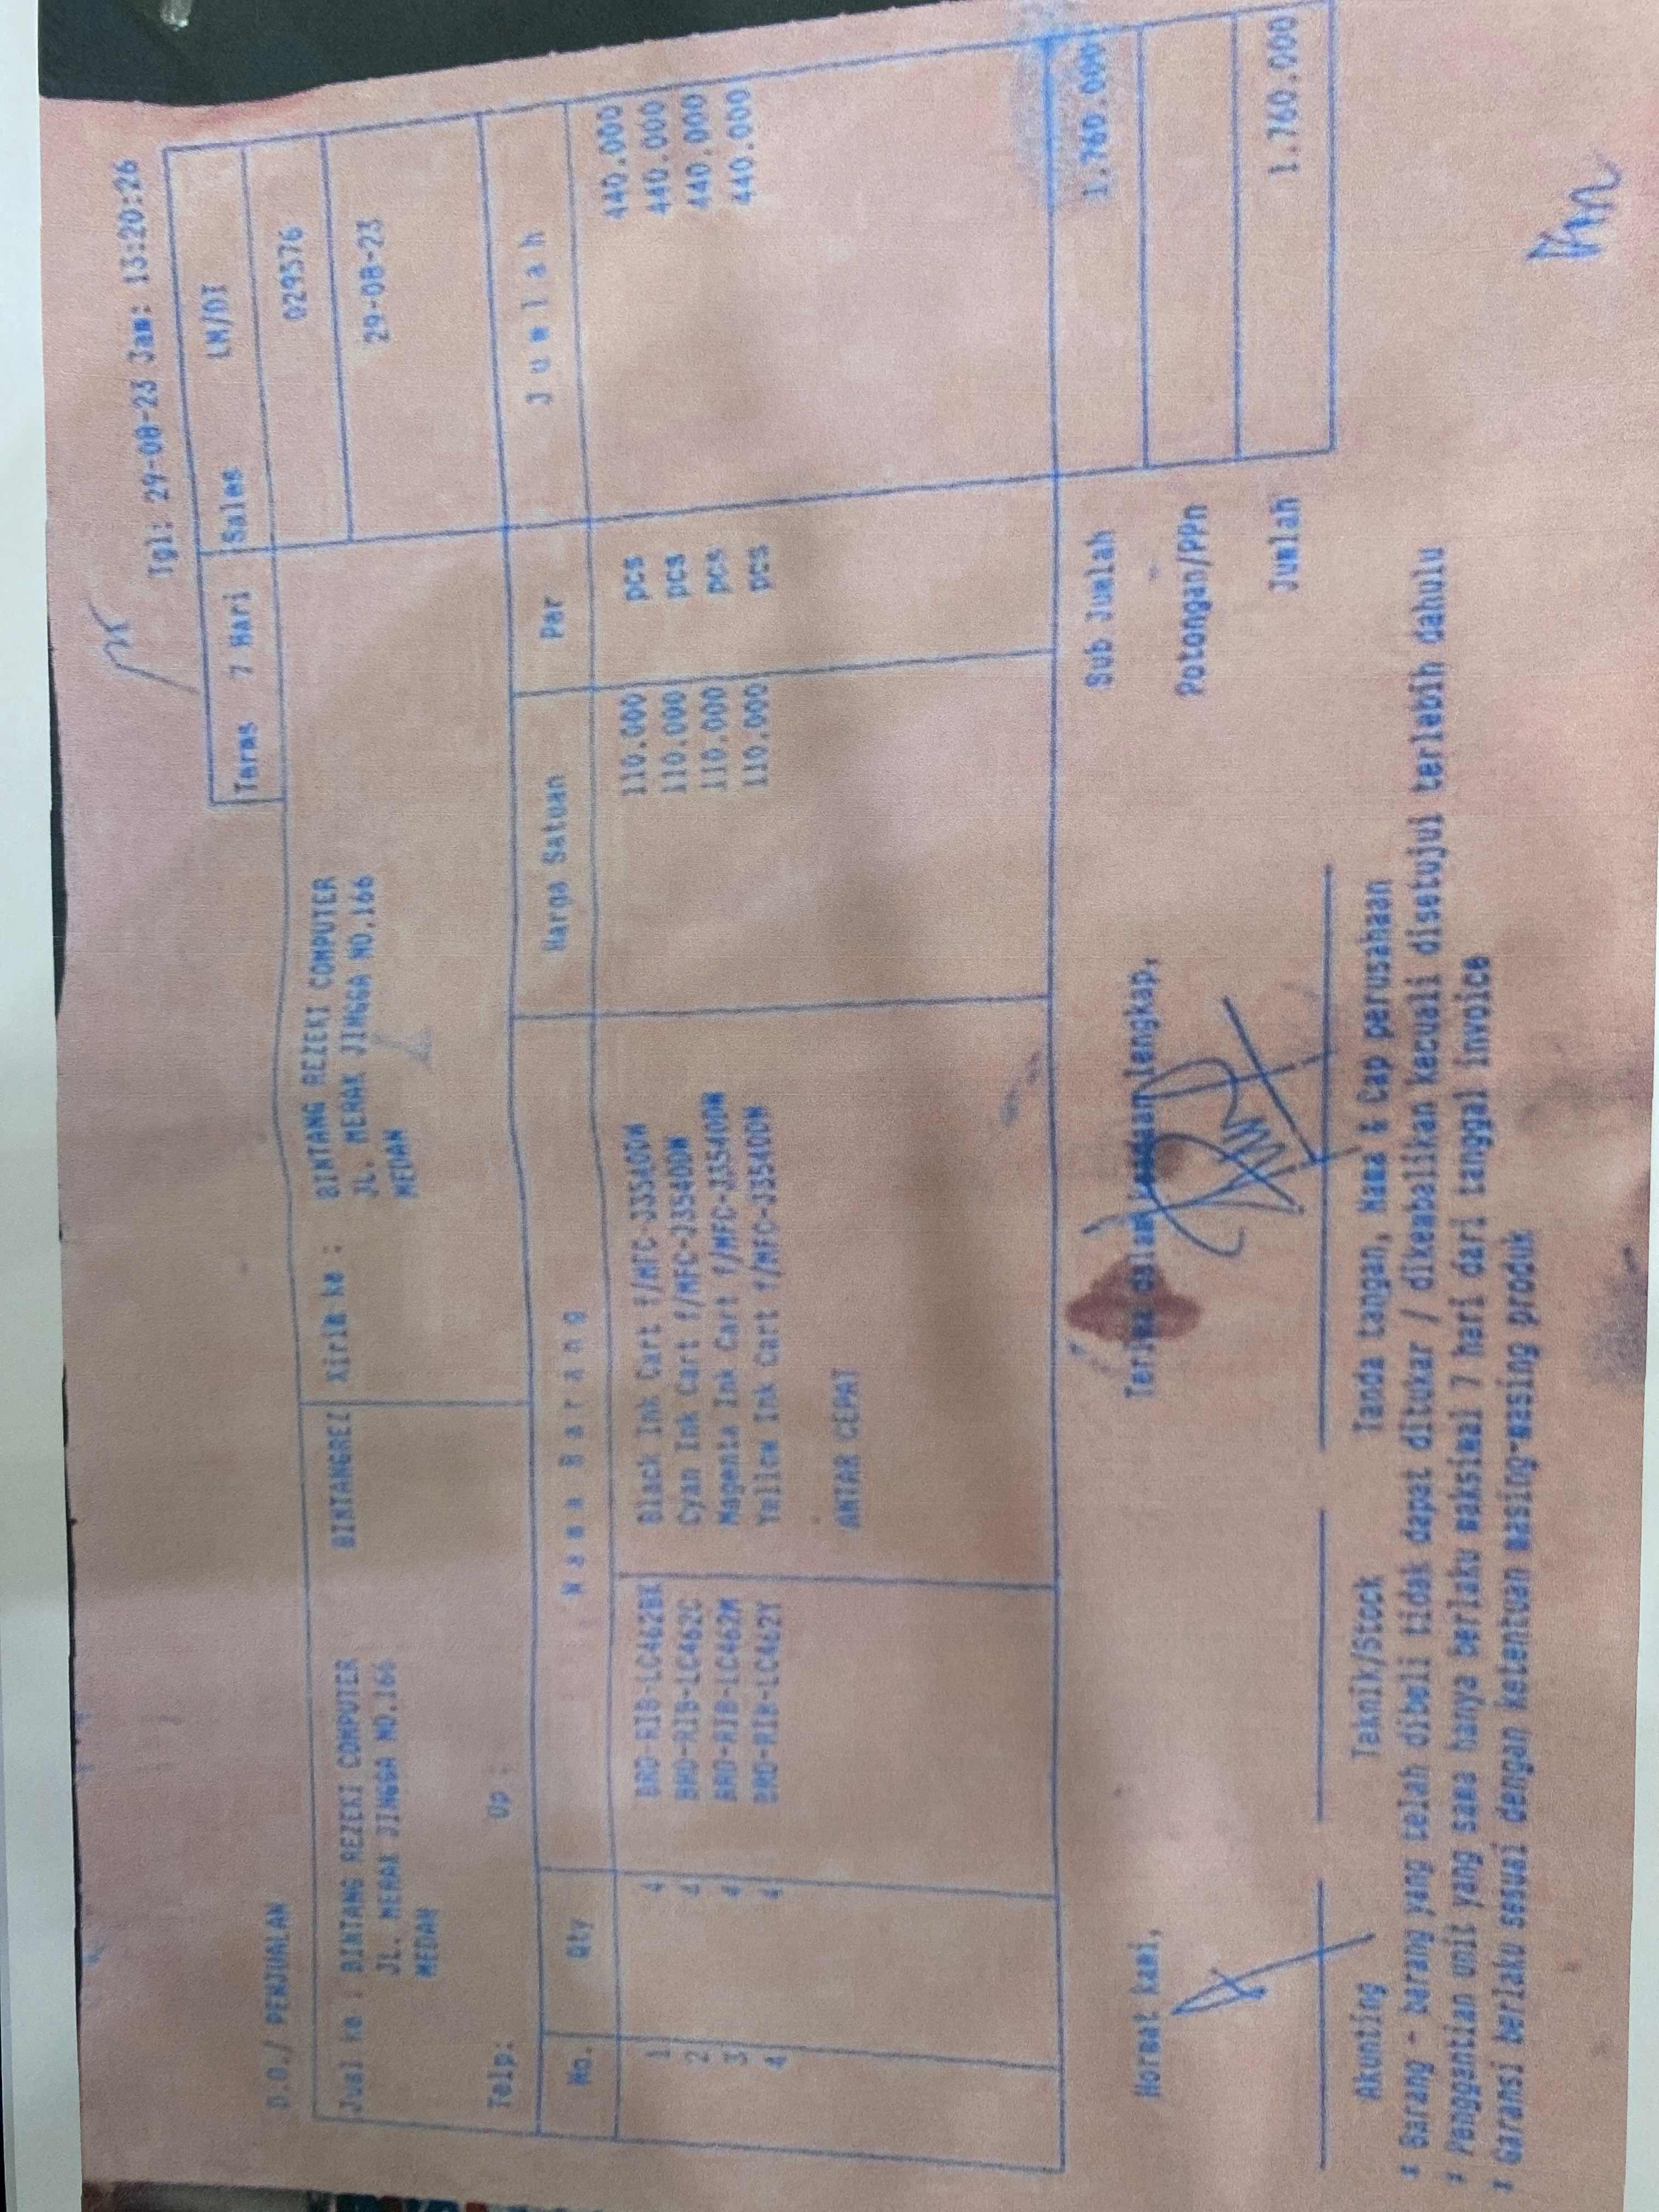 Tgl: 29-08-23 Jam: 13:20:26
D.O./ PENJUALAN
Terms 7 Hari Sales LM/DI
029576
29-08-23
Jual ke : BINTANG REZEKI COMPUTER BINTANGREZ Kirim ke : BINTANG REZEKI COMPUTER
JL. MERAK JINGGA NO.166 JL. MERAK JINGGA NO.166
MEDAN MEDAN
Telp: Up :
No. Qty N a m a B a r a n g Harga Satuan Per J u m l a h
1 4 BRO-RIB-LC462BK Black Ink Cart f/MFC-J3540DW 110.000 pcs 440.000
2 4 BRO-RIB-LC462C Cyan Ink Cart f/MFC-J3540DW 110.000 pcs 440.000
3 4 BRO-RIB-LC462M Magenta Ink Cart f/MFC-J3540DW 110.000 pcs 440.000
4 4 BRO-RIB-LC462Y Yellow Ink Cart f/MFC-J3540DW 110.000 pcs 440.000
ANTAR CEPAT
Sub Jumlah 1.760.000
Hormat kami, Terima dalam keadaan lengkap,
Potongan/PPn
Jumlah 1.760.000
Akunting Teknik/Stock Tanda tangan, Nama & Cap perusahaan
* Barang - barang yang telah dibeli tidak dapat ditukar / dikembalikan kecuali disetujui terlebih dahulu
* Penggantian unit yang sama hanya berlaku maksimal 7 hari dari tanggal invoice
* Garansi berlaku sesuai dengan ketentuan masing-masing produk